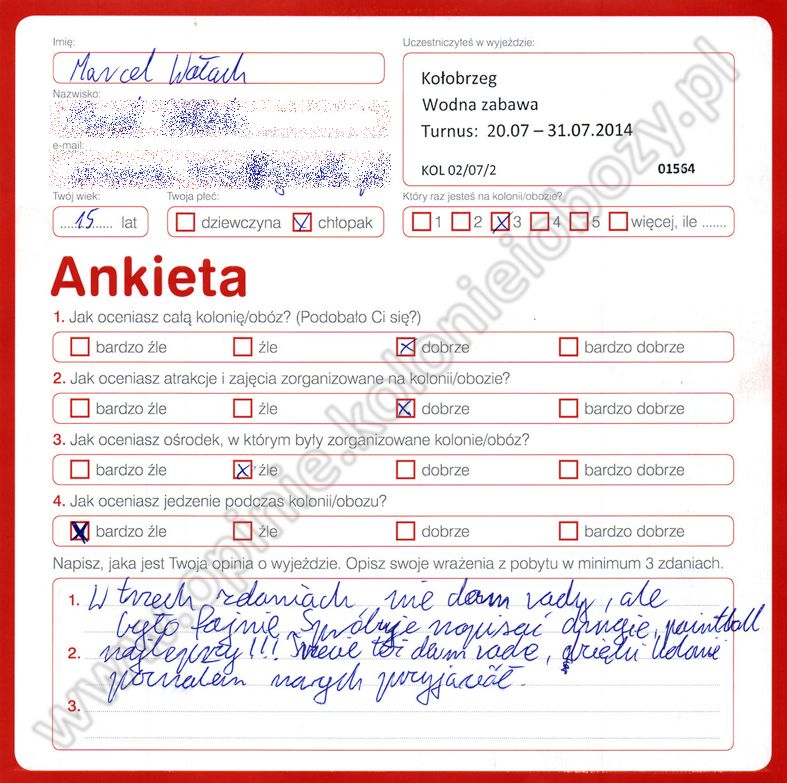 Imię:
Marcel Wołach
Nazwisko:
e-mail:
Twój wiek:
15 lat
Twoja płeć:
dziewczyna chłopak
Uczestniczyłeś w wyjeździe:
Kołobrzeg
Wodna zabawa
Turnus: 20.07 – 31.07.2014
KOL 02/07/2 01564
Który raz jesteś na kolonii/obozie?
1 2 3 4 5 więcej, ile .......
Ankieta
1. Jak oceniasz całą kolonię/obóz? (Podobało Ci się?)
bardzo źle źle dobrze bardzo dobrze
2. Jak oceniasz atrakcje i zajęcia zorganizowane na kolonii/obozie?
bardzo źle źle dobrze bardzo dobrze
3. Jak oceniasz ośrodek, w którym były zorganizowane kolonie/obóz?
bardzo źle źle dobrze bardzo dobrze
4. Jak oceniasz jedzenie podczas kolonii/obozu?
bardzo źle źle dobrze bardzo dobrze
Napisz, jaka jest Twoja opinia o wyjeździe. Opisz swoje wrażenia z pobytu w minimum 3 zdaniach.
1. W trzech zdaniach nie dam rady, ale
było fajnie. Spróbuje napisać drugie, paintball
2. najlepszy!!! też dam rade,
poznałem nowych przyjaciół.
3.
www.opinie.kolonieiobozy.pl